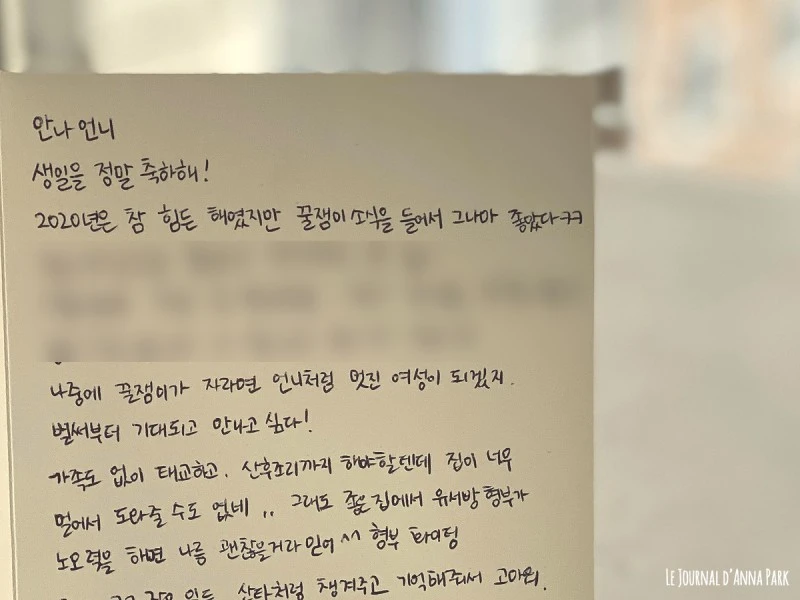 안나 언니
생일을 정말 축하해!
2020년은 참 힘든 해였지만 꿀쨈이 소식을 들어서 그나마 좋았다ㅋㅋ
나중에 꿀쨈이가 자라면 언니처럼 멋진 여성이 되겠지.
벌써부터 기대되고 만나고 싶다!
가족도 없이 태교하고, 산후조리까지 해야할텐데 집이 너무
멀어서 도와줄 수도 없네 .. 그래도 좋은 집에서 유서방 형부가
노오력을 하면 나름 괜찮을거라 믿어 ^^ 형부 화이팅
산타처럼 챙겨주고 기억해줘서 고마워.
LE JOURNAL D'ANNA PARK